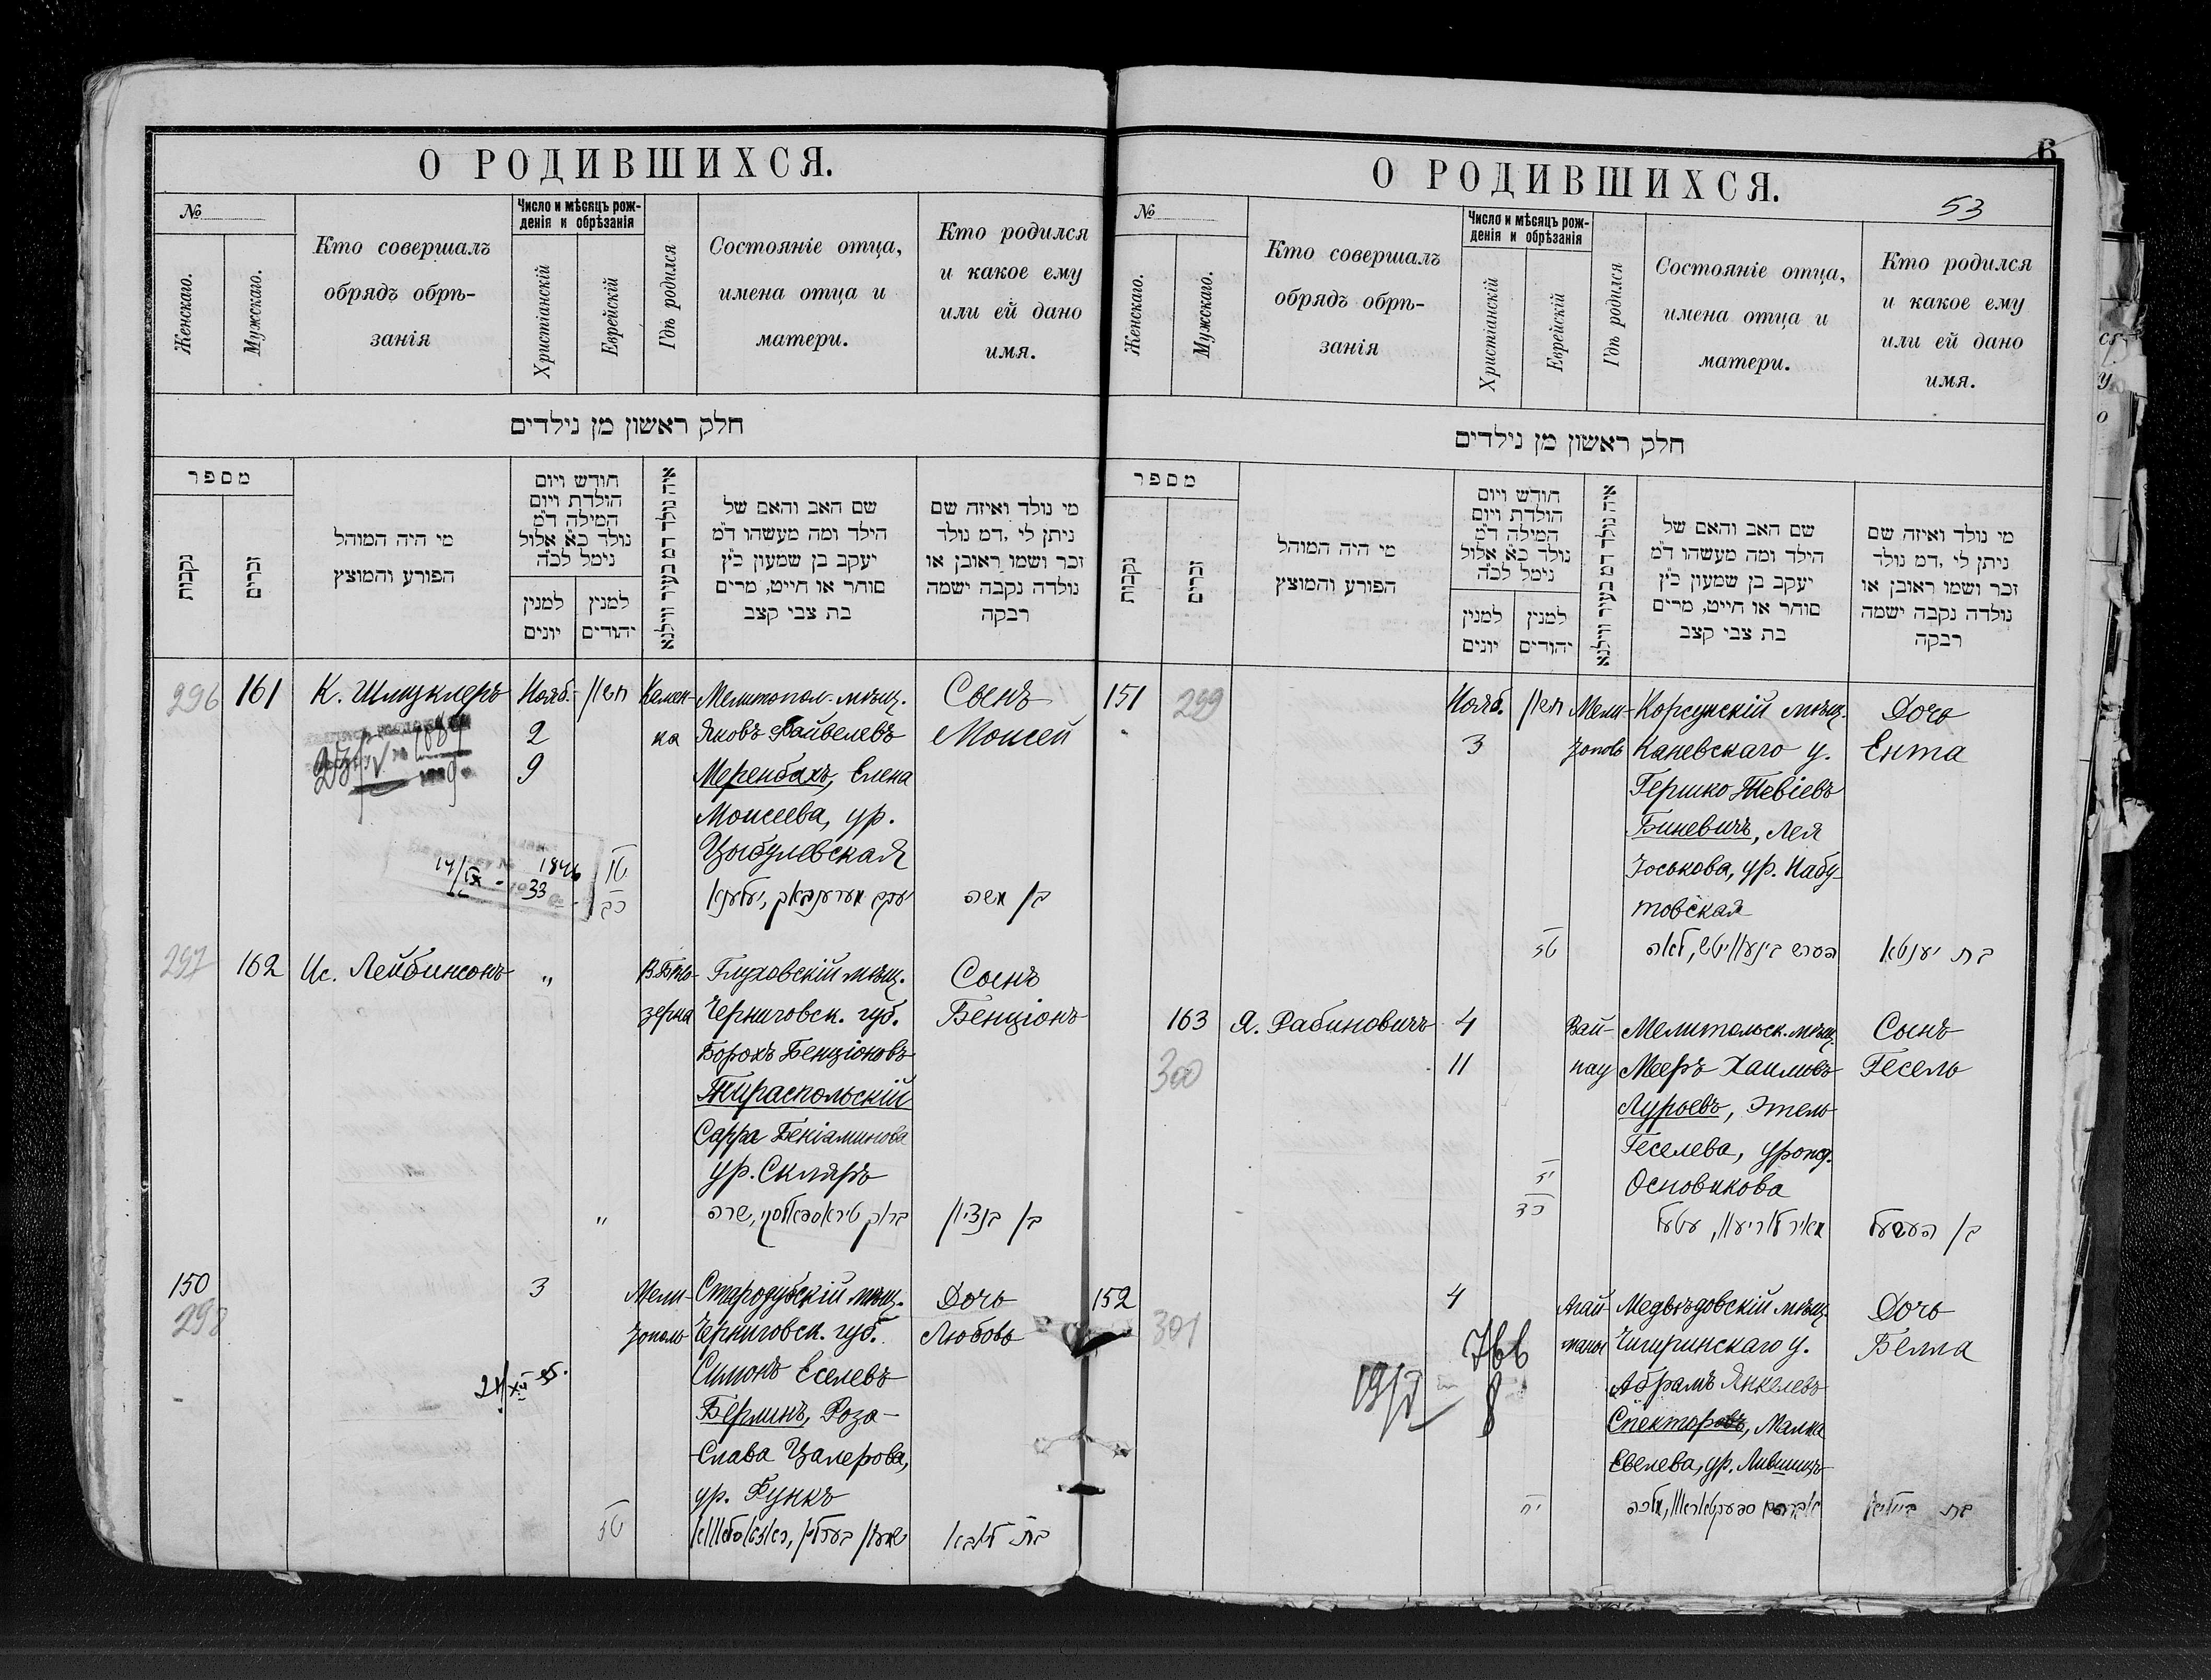 О РОДИВШИХСЯ.
№
Женскаго.
Мужскаго.
Кто совершалъ
обрядъ обрѣ-
занія
Число и мѣсяцъ рож-
денія и обрѣзанія
Христіанскій
Еврейскій
Гдѣ родился
Состояніе отца,
имена отца и
матери.
Кто родился
и какое ему
или ей дано
имя.
חלק ראשון מן נילדים
מספר
נקבות
זכרים
מי היה המוהל
הפורע והמוצץ
חודש ויום
הולדת ויום
המילה ד״מ
נולד כ״א אלול
נימל לכ״ה
למנין
יונים
למנין
יהודים
איה נולד דמ בעיר ווילנא
שם האב והאם של
הילד ומה מעשהו ד״מ
יעקב בן שמעון כ״ץ
סוחר או חייט, מרים
בת צבי קצב
מי נולד ואיזה שם
ניתן לי ,דמ נולד
זכר ושמו ראובן או
נולדה נקבה ישמה
רבקה
296
161
К. Шлуклеръ
Нояб.
2
9
Камен-
ка
Мелитопол. мѣщ.
Яковъ Файвелевъ
Меренбахъ, Елена
Моисеева, ур.
Цыбулевская
Сынъ
Моисей
בן משה
14/IX - 33
1846
297
162
Ис. Лейбинсонъ
"
В. Бѣло-
зерка
Глуховскій мѣщ.
Черниговск. губ.
Борохъ Бенціоновъ
Тираспольскій
Сарра Беніаминова
ур. Скляръ
Сынъ
Бенціонъ
"
ברוך טיראספאלסקי, שרה
בן בנציון
150
298
3
Мели-
тополь
Стародубскій мѣщ.
Черниговск. губ.
Симонъ Еселевъ
Берлинъ, Роза-
Слава Цалерова,
ур. Функъ
Дочь
Любовь
טז
בת ליבא
О РОДИВШИХСЯ.
6
53
№
Женскаго.
Мужскаго.
Кто совершалъ
обрядъ обрѣ-
занія
Число и мѣсяцъ рож-
денія и обрѣзанія
Христіанскій
Еврейскій
Гдѣ родился
Состояніе отца,
имена отца и
матери.
Кто родился
и какое ему
или ей дано
имя.
חלק ראשון מן נילדים
מספר
נקבות
זכרים
מי היה המוהל
הפורע והמוצץ
חודש ויום
הולדת ויום
המילה ד״מ
נולד כ״א אלול
נימל לכ״ה
למנין
יונים
למנין
יהודים
איה נולד דמ בעיר ווילנא
שם האב והאם של
הילד ומה מעשהו ד״מ
יעקב בן שמעון כ״ץ
סוחר או חייט, מרים
בת צבי קצב
מי נולד ואיזה שם
ניתן לי ,דמ נולד
זכר ושמו ראובן או
נולדה נקבה ישמה
רבקה
151
299
Нояб.
3
Корсунскій мѣщ.
Каневскаго у.
Гершко Тевіевъ
Биневичъ, Лея
Іоськова, ур. Набу-
товская
Дочь
Ента
טז
הערש בינעוויטש, לאה
בת יענטא
163
300
Я. Рабиновичъ
4
11
Вай-
нау
Мееръ Хаимовъ
Лурьевъ, Этель
Геселева, урожд.
Основикова
Сынъ
Гесель
מאיר לוריעוו, עטעל
בן העסעל
152
301
4
Медвѣдовскій мѣщ.
Чигиринскаго у.
Абрамъ Янкелевъ
Спекторовъ, Малка
Евелева, ур. Лившицъ
Дочь
Белла
766
יח